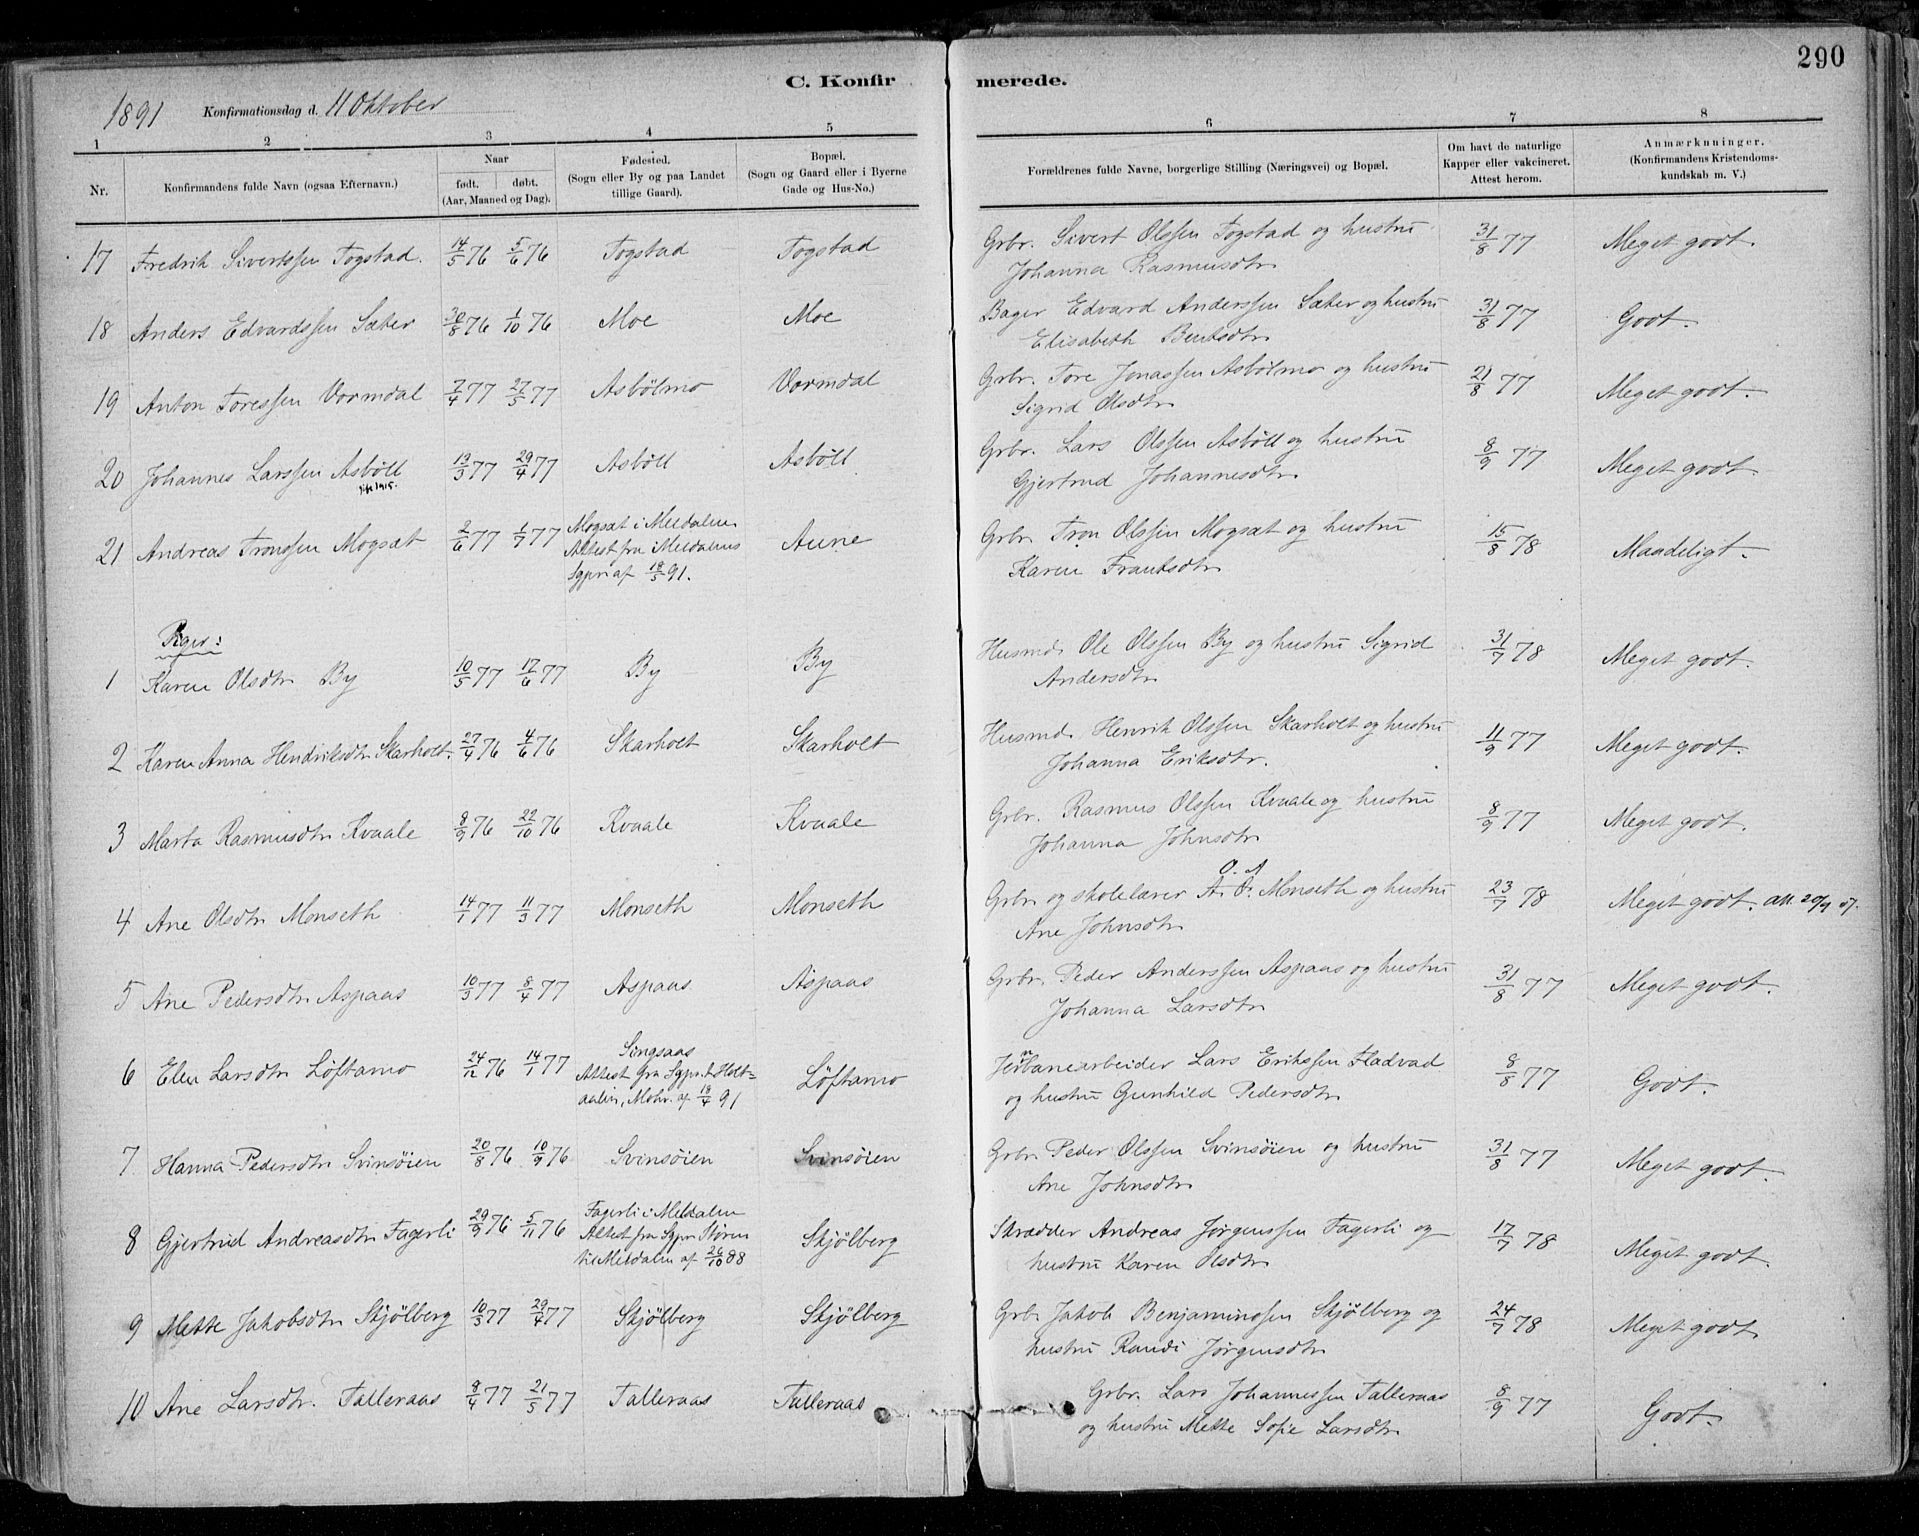 290
C. Konfirmerede.
1891 Konfirmationsdag d. 11 Oktober
1 2 3 4 5 6 7 8
Nr. Konfirmandens fulde Navn (ogsaa Efternavn.) Naar født. døbt. (Aar, Maaned og Dag). Fødested. (Sogn eller By og paa Landet tillige Gaard). Bopæl. (Sogn og Gaard eller i Byerne Gade og Hus-No.) Forældrenes fulde Navne, borgerlige Stilling (Næringsvei) og Bopæl. Om havt de naturlige Kapper eller vakcineret. Attest herom. Anmærkninger. (Konfirmandens Kristendomskundskab m. V.)
17 Fredrik Sivertssen Togstad. 14/5 76 5/6 76 Togstad Togstad Grbr. Sivert Olssen Togstad og hustru 31/8 77 Meget godt.
Johanna Rasmusdtr.
18 Anders Edvardssen Sæter 30/8 76 1/10 76 Moe Moe Bager Edvard Anderssen Sæter og hustru 31/8 77 Godt.
Elisabeth Bentsdtr.
19 Anton Toressen Vormdal 7/4 77 27/5 77 Asbölmo Vormdal Grbr. Tore Jonassen Asbölmo og hustru 21/8 77 Meget godt.
Sigrid Olsdtr.
20 Johannes Larssen Asböll 13/3 77 29/4 77 Asböll Asböll Grbr. Lars Olssen Asböll og hustru 8/9 77 Meget godt.
1915. Gjertrud Johannesdtr.
21 Andreas Tronssen Mogsæt 2/6 77 1/7 77 Mogsæt i Meldalen Attest fra Meldalens Sgpr. af 18/5 91. Aune Grbr. Tron Olssen Mogsæt og hustru 15/8 78 Maadeligt.
Karen Frantsdtr.
Piger:
1 Karen Olsdtr. By 10/5 77 17/6 77 By By Husmd. Ole Olssen By og hustru Sigrid 31/7 78 Meget godt.
Andersdtr.
2 Karen Anna Hendriksdtr. Skarholt. 27/4 76 4/6 76 Skarholt Skarholt Husmd. Henrik Olssen Skarholt og hustru 11/9 77 Meget godt.
Johanna Eriksdtr.
3 Marta Rasmusdtr. Kvaale 8/9 76 22/10 76 Kvaale Kvaale Grbr. Rasmus Olssen Kvaale og hustru 8/9 77 Meget godt.
Johanna Johnsdtr.
O. A.
4 Ane Olsdtr. Monseth 14/1 77 11/3 77 Monseth Monseth Grbr. og skolelærer A. O. Monseth og hustru 23/7 78 Meget godt. att. 20/9 07.
Ane Johnsdtr.
5 Ane Pedersdtr. Aspaas 10/3 77 8/4 77 Aspaas Aspaas Grbr. Peder Anderssen Aspaas og hustru 31/8 77 Meget godt.
Johanna Larsdtr.
6 Elen Larsdtr. Löftamo 24/12 76 14/1 77 Singsaas Attest fra Sgpr. t. Holtaalen, Mohr. af 18/4 91 Löftamo Jernbanearbeider Lars Erikssen Fladvad 8/8 77 Godt.
og hustru Gunhild Pedersdtr.
7 Hanna Pedersdtr. Svinsöien 20/8 76 10/9 76 Svinsöien Svinsöien Grbr. Peder Olssen Svinsöien og hustru 31/8 77 Meget godt.
Ane Johnsdtr.
8 Gjertrud Andreasdtr. Fagerli 29/9 76 5/11 76 Fagerli i Meldalen Attest fra Sgpr. Støren til Meldalen af 26/10 88 Skjölberg Skrædder Andreas Jørgenssen Fagerli og 17/7 78 Meget godt.
hustru Karen Olsdtr.
9 Mette Jakobsdtr. Skjölberg 10/3 77 29/4 77 Skjölberg Skjölberg Grbr. Jakob Benjaminssen Skjölberg og 24/7 78 Meget godt.
hustru Randi Jörgensdtr.
10 Ane Larsdtr. Talleraas 8/4 77 21/5 77 Talleraas Talleraas Grbr. Lars Johannessen Talleraas 8/9 77 Godt.
og hustru Mette Sofie Larsdtr.